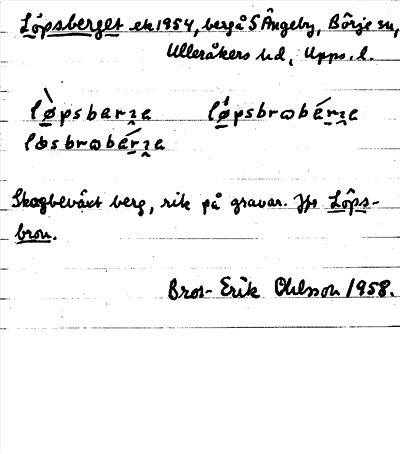 Löpsberget ek 1954, berg å S Ängeby, Börje sn,
Ulleråkers hd, Upps. l.
løpsbarɪa løpsbrωbárɪa
løsbrωbárɪa
Skogbeväxt berg, rik på gravar. Jfr Löps-
bron.
Bror-Erik Ohlsson 1958.